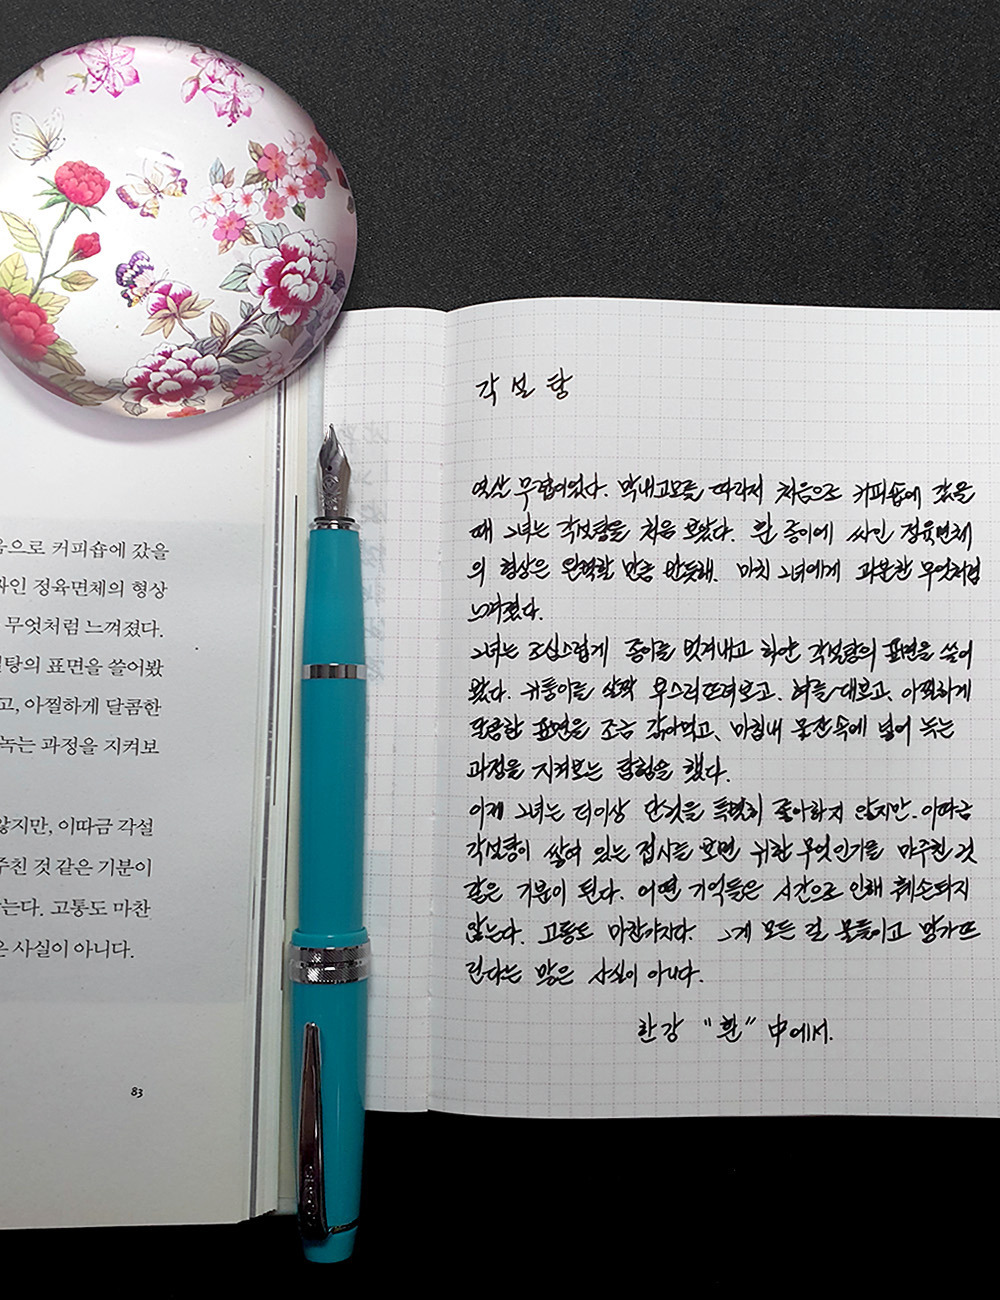 음으로 커피숍에 갔을
싸인 정육면체의 형상
무엇처럼 느껴졌다.
설탕의 표면을 쓸어봤
고, 아찔하게 달콤한
녹는 과정을 지켜보
않지만, 이따금 각설
주친 것 같은 기분이
않는다. 고통도 마찬
은 사실이 아니다.
83
각설탕
열살 무렵이었다. 막내고모를 따라서 처음으로 커피숍에 갔을
때 그녀는 각설탕을 처음 보았다. 흰 종이에 싸인 정육면체
의 형상은 완벽할 만큼 반듯해, 마치 그녀에게 과분한 무엇처럼
느껴졌다.
그녀는 조심스럽게 종이를 벗겨내고 하얀 각설탕의 표면을 쓸어
봤다. 귀퉁이를 살짝 부스러뜨려보고, 혀를 대보고, 아찔하게
달콤한 표면을 조금 갉아먹고, 마침내 물잔속에 넣어 녹는
과정을 지켜보는 탐험을 했다.
이제 그녀는 더이상 단것을 특별히 좋아하지 않지만, 이따금
각설탕이 쌓여 있는 접시를 보면 귀한 무엇인가를 마주친 것
같은 기분이 된다. 어떤 기억들은 시간으로 인해 훼손되지
않는다. 고통도 마찬가지다. 그게 모든 걸 물들이고 망가뜨
린다는 말은 사실이 아니다.
한강 "흰" 中에서.